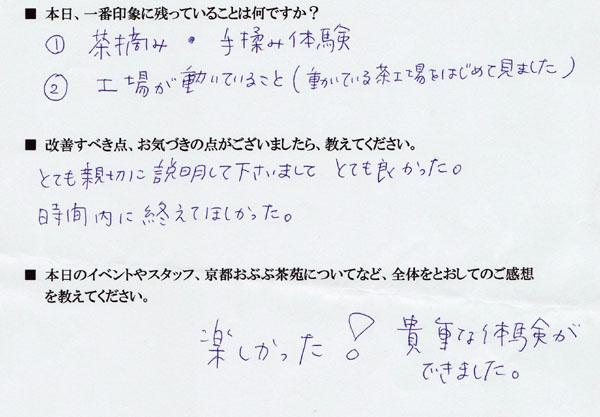 ■ 本日、一番印象に残っていることは何ですか？
① 茶摘み・手揉み体験
② 工場が動いていること(動いている茶工場をはじめて見ました)
■ 改善すべき点、お気づきの点がございましたら、教えてください。
とても親切に説明して下さいまして とても良かった。
時間内に終えてほしかった。
■ 本日のイベントやスタッフ、京都おぶぶ茶苑についてなど、全体をとおしてのご感想
を教えてください。
楽しかった! 貴重な体験が
できました。